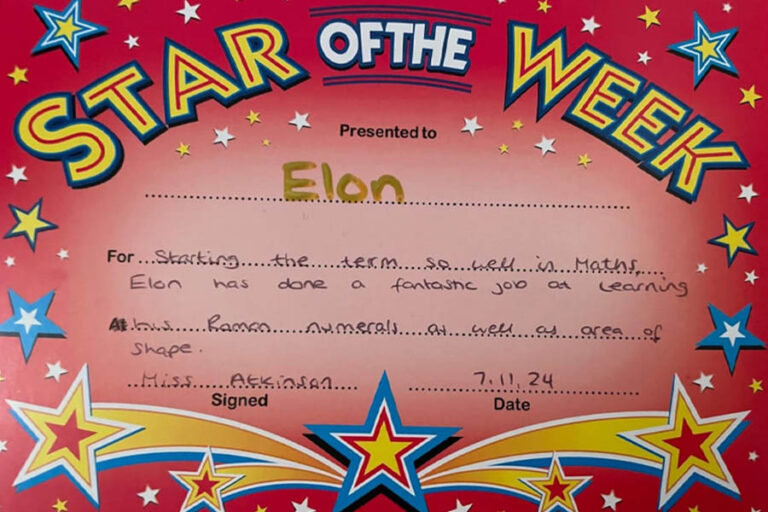 STAR OF THE WEEK
Presented to
Elon
For Starting the term so well in Maths,
Elon has done a fantastic job at learning
his Roman numerals as well as area of
shape.
Miss Atkinson 7.11.24
Signed Date